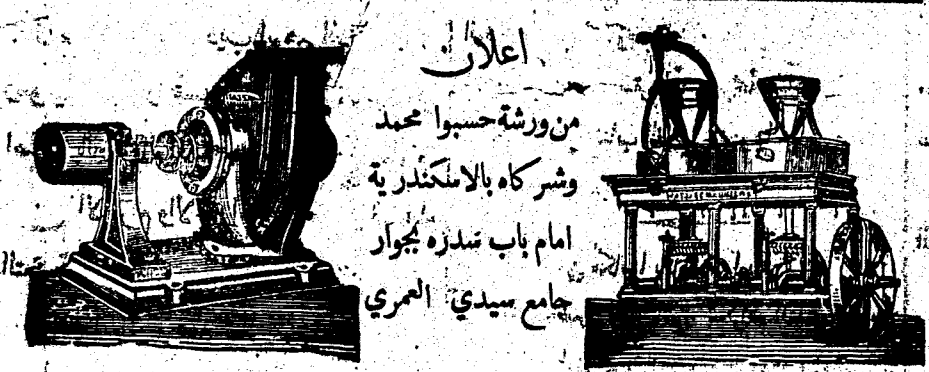 اعلان
من ورشة حسبوا محمد
وشركاه بالاسكندرية
امام باب سدره بجوار
جامع سيدي العمري